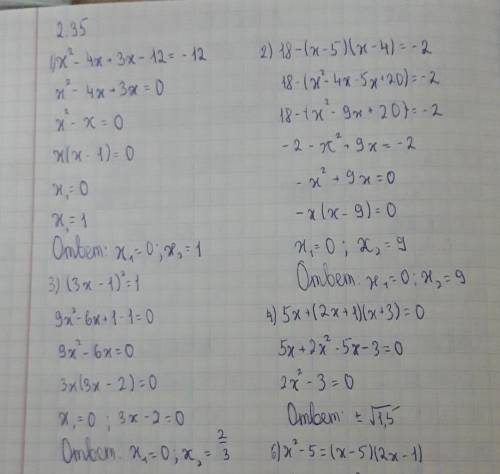 2.35
1) x² - 4x + 3x - 12 = -12
x² - 4x + 3x = 0
x² - x = 0
x(x - 1) = 0
x₁ = 0
x₁ = 1
Ответ: x₁ = 0; x₂ = 1
2) 18 - (x - 5)(x - 4) = -2
18 - (x² - 4x - 5x + 20) = -2
18 - (x² - 9x + 20) = -2
-2 - x² + 9x = -2
-x² + 9x = 0
-x(x - 9) = 0
x₁ = 0; x₂ = 9
Ответ: x₁ = 0; x₂ = 9
3) (3x - 1)² = 1
9x² - 6x + 1 - 1 = 0
9x² - 6x = 0
3x(3x - 2) = 0
x₁ = 0; 3x - 2 = 0
Ответ: x₁ = 0; x₂ = 2/3
4) 5x + (2x + 1)(x + 3) = 0
5x + 2x² - 5x - 3 = 0
2x² - 3 = 0
Ответ: ± √1,5
6) x² - 5 = (x - 5)(2x - 1)